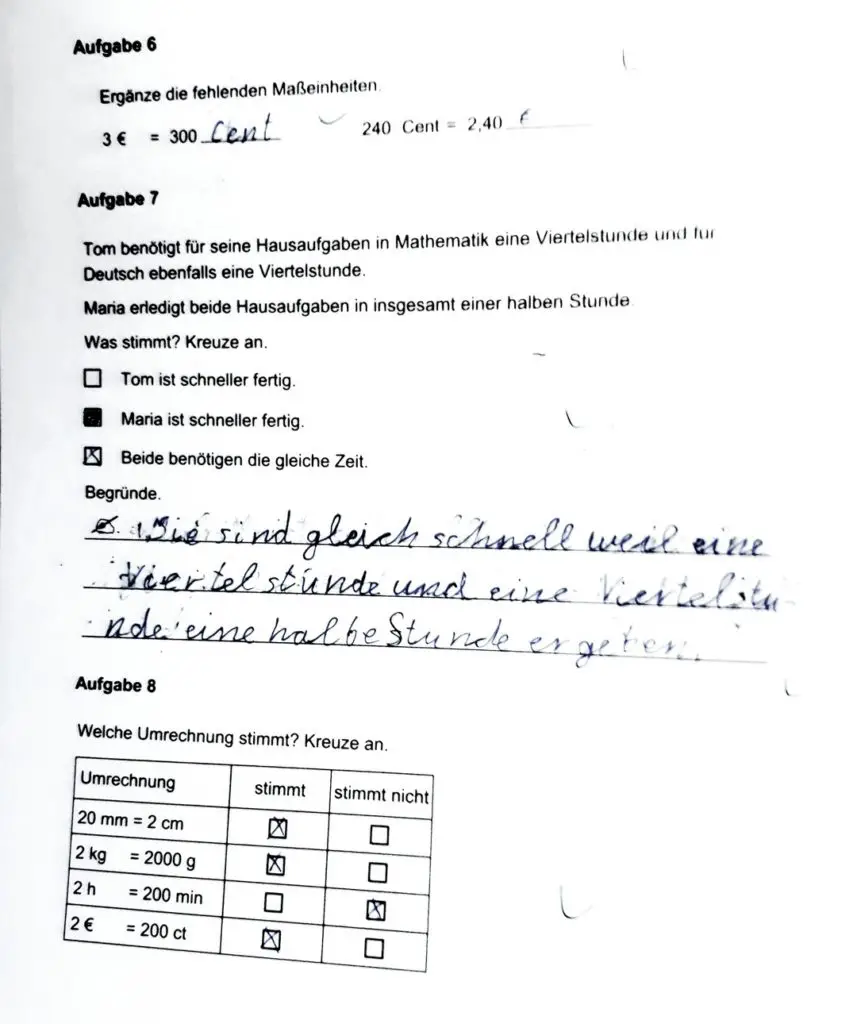 Aufgabe 6
Ergänze die fehlenden Maßeinheiten.
3 € = 300 Cent 240 Cent = 2,40 €
Aufgabe 7
Tom benötigt für seine Hausaufgaben in Mathematik eine Viertelstunde und für
Deutsch ebenfalls eine Viertelstunde.
Maria erledigt beide Hausaufgaben in insgesamt einer halben Stunde.
Was stimmt? Kreuze an.
Tom ist schneller fertig.
Maria ist schneller fertig.
Beide benötigen die gleiche Zeit.
Begründe.
Sie sind gleich schnell weil eine
Viertelstunde und eine Viertelstu
nde eine halbe Stunde ergeben.
Aufgabe 8
Welche Umrechnung stimmt? Kreuze an.
Umrechnung stimmt stimmt nicht
20 mm = 2 cm
2 kg = 2000 g
2 h = 200 min
2 € = 200 ct